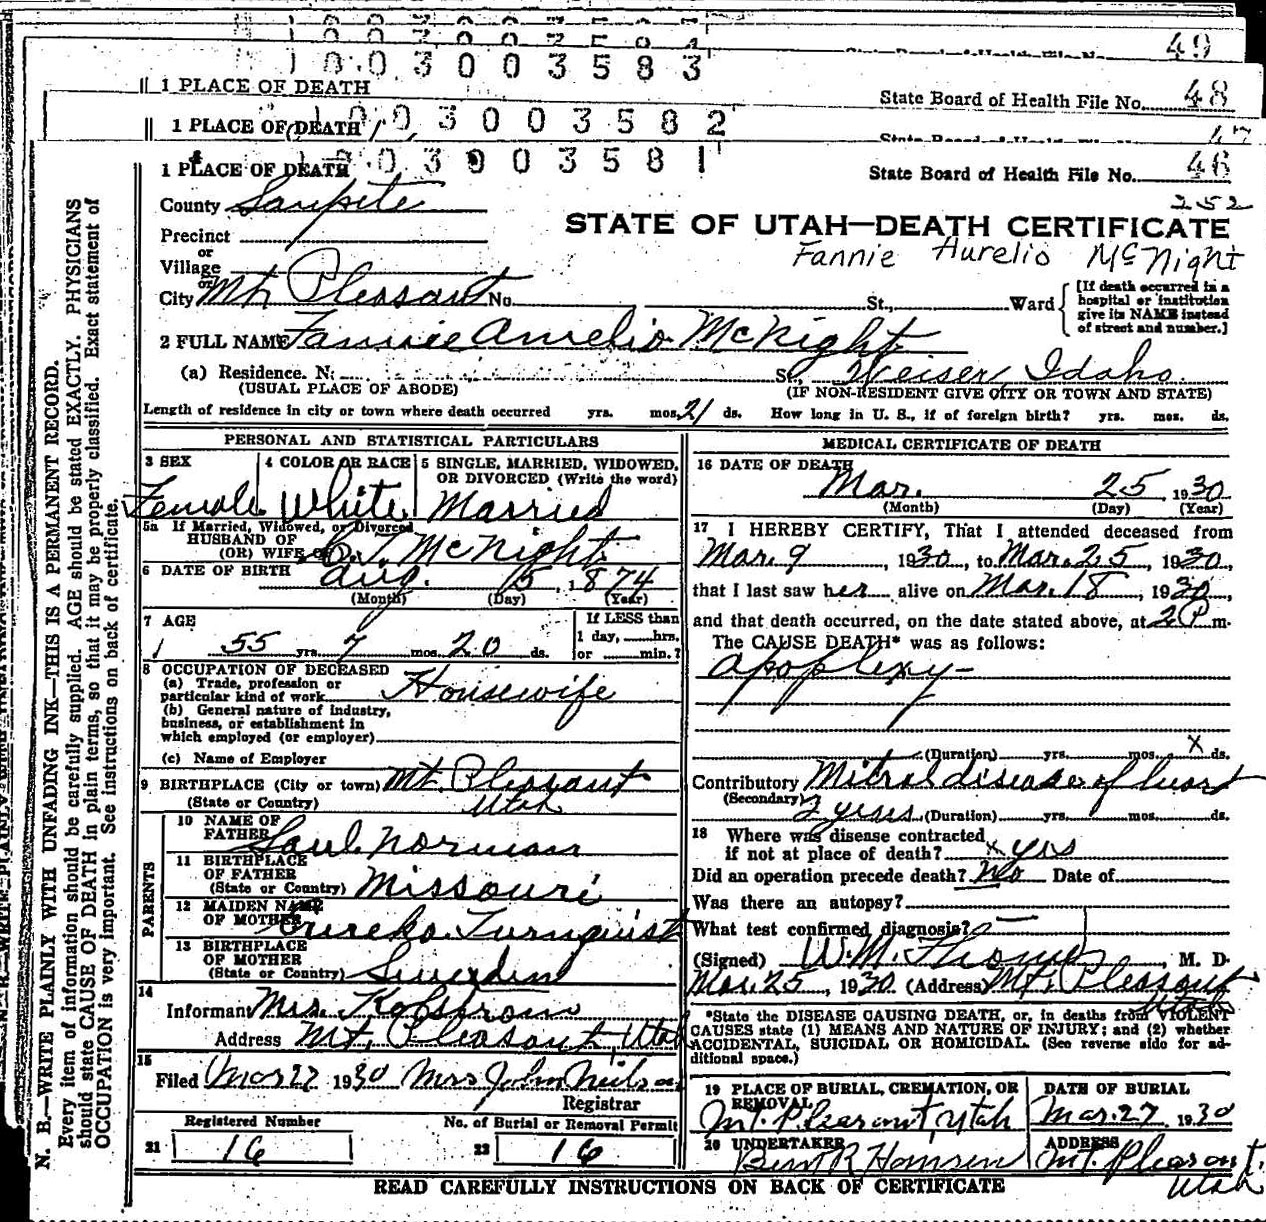 49
1 0 0 3 0 0 3 5 8 3
1 PLACE OF DEATH
State Board of Health File No. 48
0 3 0 0 3 5 8 2
1 PLACE OF DEATH
1 0 0 3 0 0 3 5 8 1
1 PLACE OF DEATH
State Board of Health File No. 46
252
County Sanpete
STATE OF UTAH—DEATH CERTIFICATE
Precinct
Fannie Aurelio McNight
or
Village
or
City Mt. Pleasant No. St., Ward
[If death occurred in a hospital or institution give its NAME instead of street and number.]
2 FULL NAME Fannie Amelio McKnight
(a) Residence. No. St., Weiser, Idaho.
(USUAL PLACE OF ABODE) (IF NON-RESIDENT GIVE CITY OR TOWN AND STATE)
Length of residence in city or town where death occurred yrs. mos. 21 ds. How long in U. S., if of foreign birth? yrs. mos. ds.
PERSONAL AND STATISTICAL PARTICULARS
3 SEX Female
4 COLOR OR RACE White
5 SINGLE, MARRIED, WIDOWED, OR DIVORCED (Write the word) Married
5a If Married, Widowed, or Divorced
HUSBAND OF
(OR) WIFE OF T. McNight
6 DATE OF BIRTH Aug. 15, 1874
(Month) (Day) (Year)
7 AGE 55 yrs. 7 mos. 20 ds.
If LESS than
1 day, hrs.
or min.?
8 OCCUPATION OF DECEASED
(a) Trade, profession or
particular kind of work Housewife
(b) General nature of industry,
business, or establishment in
which employed (or employer)
(c) Name of Employer
9 BIRTHPLACE (City or town) Mt. Pleasant
(State or Country) Utah
PARENTS
10 NAME OF
FATHER Saul Norman
11 BIRTHPLACE
OF FATHER
(State or Country) Missouri
12 MAIDEN NAME
OF MOTHER Eureka Turnquist
13 BIRTHPLACE
OF MOTHER
(State or Country) Sweeden
14
Informant Mrs. Kofstrom
Address Mt. Pleasant, Utah
15
Filed Mar 27 1930 Mrs John Neilson
Registrar
Registered Number
21 16
No. of Burial or Removal Permit
22 16
MEDICAL CERTIFICATE OF DEATH
16 DATE OF DEATH
Mar. 25, 1930
(Month) (Day) (Year)
17 I HEREBY CERTIFY, That I attended deceased from
Mar. 9, 1930, to Mar. 25, 1930,
that I last saw her alive on Mar. 18, 1930,
and that death occurred, on the date stated above, at 2 P m.
The CAUSE DEATH* was as follows:
Apoplexy
(Duration) yrs. mos. X ds.
Contributory Mitral disease of heart
(Secondary)
2 years (Duration) yrs. mos. ds.
18 Where was disease contracted
if not at place of death? x yes
Did an operation precede death? No Date of
Was there an autopsy?
What test confirmed diagnosis?
(Signed) W.M. , M. D.
Mar. 25, 1930 (Address) Mt. Pleasant
Utah
*State the DISEASE CAUSING DEATH, or, in deaths from VIOLENT
CAUSES state (1) MEANS AND NATURE OF INJURY; and (2) whether
ACCIDENTAL, SUICIDAL OR HOMICIDAL. (See reverse side for ad-
ditional space.)
19 PLACE OF BURIAL, CREMATION, OR
REMOVAL
Mt. Pleasant, Utah
DATE OF BURIAL
Mar. 27 1930
20 UNDERTAKER
ADDRESS
Mt. Pleasant.
Utah
READ CAREFULLY INSTRUCTIONS ON BACK OF CERTIFICATE
N. B.—WRITE PLAINLY WITH UNFADING INK—THIS IS A PERMANENT RECORD.
Every item of information should be carefully supplied. AGE should be stated EXACTLY. PHYSICIANS
should state CAUSE OF DEATH in plain terms, so that it may be properly classified. Exact statement of
OCCUPATION is very important. See instructions on back of certificate.